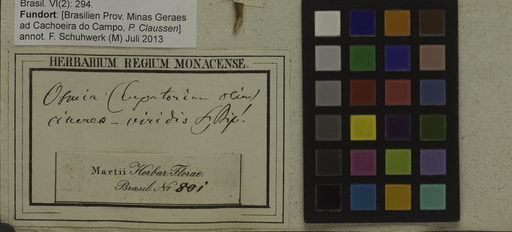 Brasil. VI(2): 294.
Fundort: [Brasilien Prov. Minas Geraes
ad Cachoeira do Campo, P. Claussen]
annot. F. Schuhwerk (M) Juli 2013
HERBARIUM REGIUM MONACENSE.
Osmia (Eupatorium
cinereo-viridis
Martii Herbar. Florae
Brasil. No 801